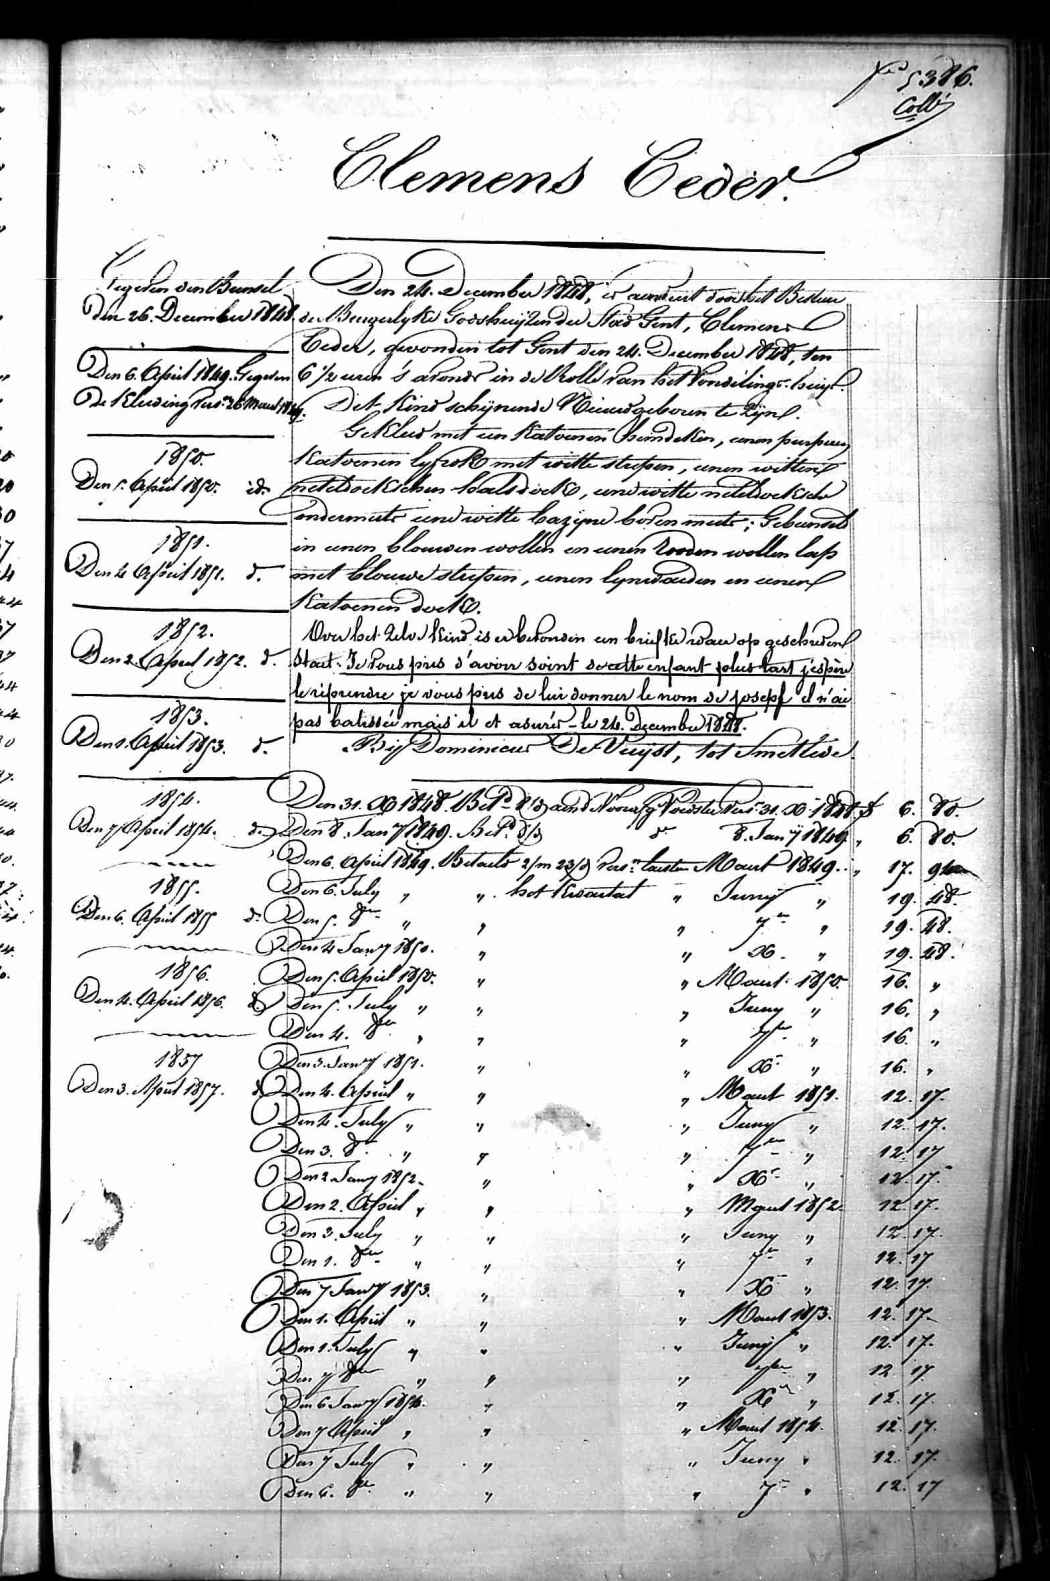 5386.
Coll
Clemens Ceder.
Gegeven den Bunsel
Den 26. December 1848.
Den 6. April 1849. Gegeven
De Kleeding Pers. 26 Maart 1849.
1850.
Den 5. April 1850. id.
1851.
Den 4 April 1851. d.
1852.
Den 2. April 1852. d.
1853.
Den 1. April 1853. d.
1854.
Den 7 April 1854. d.
1855.
Den 6. April 1855 d.
1856.
Den 4. April 1856. d.
1857
Den 3. April 1857. d.
Den 24. December 1848, is aenveert door het Bestuer
der Burgerlyke Godshuijzen der Stad Gent, Clemens
Ceder, gevonden tot Gent den 24. December 1848, ten
6 1/2 uren s'avonds in de Rolle van het Vondelings-huijs.
Dit Kind schijnende Nieuwgeboren te Zijn.
Gekleed met een Katoenen hemdeken, eenen purpuren
Katoenen lyfrok met witte streepen, eenen witten
neteldoekschen halsdoek, eene witte neteldoeksche
ondermuts eene witte bazijne boven muts; Gebunseld
in eenen blauwen wollen en eenen Rooden wollen lap
met blauwe streepen, eenen lynwaeden en eenen
Katoenen doek.
Over het Zelve Kind is er bevonden een briefke waer op geschreven
Staet. Je vous pries d'avoir soint de cette enfant plus tart j'espère
le réprendre je vous pries de lui donner le nom de josepf il n'ai
pas batissée mais il et asurée - le 24. December 1848.
Bij Dominicus De Vuijst, tot Smetlede.
Den 31. Xb 1848. Bet. 8/d aend Voedster Pers. 31. Xb 1848 f 6. 80.
Den 8. Jany 1849. Bet. 8/d d° 8. Jany 1849. " 6. 80.
Den 6. April 1849. Betaeld 2/m 23/d Pers. laetsten Maart 1849. " 17. 94
Den 6. July " " het Kwartael " Juny " 19. 48.
Den 5. 8er " " " 7er " 19. 48.
Den 4 Jany 1850. " " Xb. " 19. 48.
Den 5. April 1850. " " Maart 1850. 16. "
Den 5. July " " " Juny " 16. "
Den 4. 8er " " " 7er " 16. "
Den 3. Jany 1851. " " Xb " 16. "
Den 4. April " " " Maart 1851. 12. 17.
Den 4. July " " " Juny " 12. 17.
Den 3. 8er " " " 7er " 12. 17
Den 2 Jany 1852. " " Xb " 12. 17.
Den 2. April " " " Maart 1852. 12. 17.
Den 3. July " " " Juny " 12. 17.
Den 1. 8er " " " 7er " 12. 17
Den 7 Jany 1853. " " Xb " 12. 17.
Den 1. April " " " Maart 1853. 12. 17.
Den 1. July " " " Juny " 12. 17.
Den 7 8er " " " 7er " 12 17
Den 6 Jany 1854. " " Xb " 12. 17.
Den 7 April " " " Maart 1854. 12. 17.
Den 7 July " " " Juny " 12. 17.
Den 6. 8er " " " 7er " 12. 17